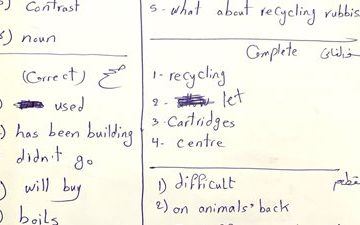 ) Contrast
) noun
(Correct) صح
) used
) has been building
didn't go
) will buy
) boils
5. what about recycling rubbis
Complete
1- recycling
2- let
3- Cartridges
4- centre
1) difficult
2) on animals' back